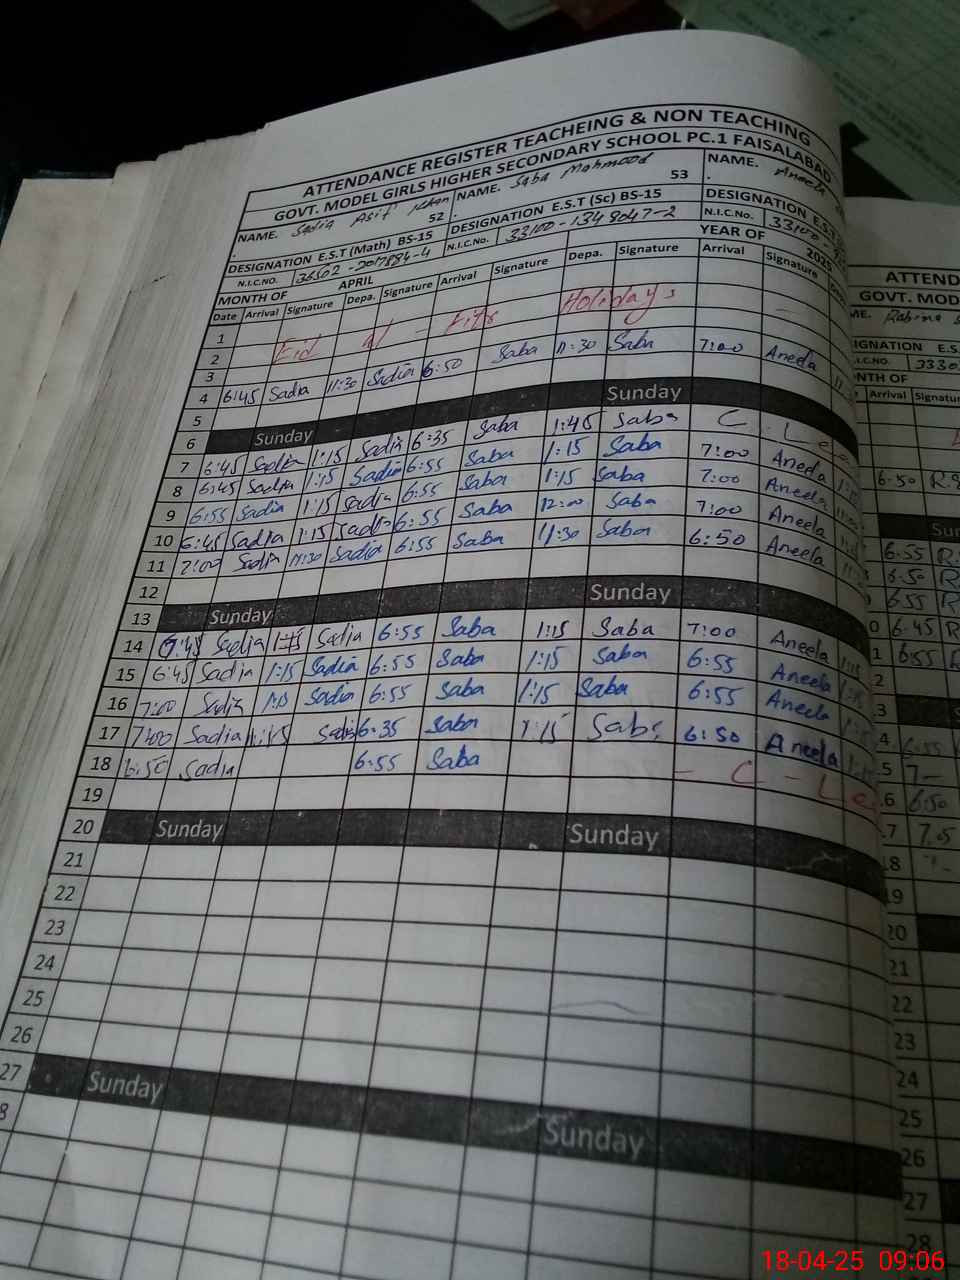 ATTENDANCE REGISTER TEACHEING & NON TEACHING
GOVT. MODEL GIRLS HIGHER SECONDARY SCHOOL PC.1 FAISALABAD
NAME. Sadia Asif Khan 52 NAME. Saba Mahmood 53 NAME. Aneela
DESIGNATION E.S.T (Math) BS-15 DESIGNATION E.S.T (Sc) BS-15 DESIGNATION E.S.
N.I.C.NO. N.I.C.No. 33100-1348047-2 N.I.C.No. 33100-
MONTH OF APRIL YEAR OF 2025
Date Arrival Signature Depa. Signature Arrival Signature Depa. Signature Arrival Signature
1
2 Eid ul - Fitr Holidays
3
4 6:45 Sadia 11:30 Sadia 6:50 Saba 11:30 Saba 7:00 Aneela
5
6 Sunday Sunday
7 6:45 Sadia 1:15 Sadia 6:35 Saba 1:45 Saba C. Le
8 6:45 Sadia 1:15 Sadia 6:55 Saba 1:15 Saba 7:00 Aneela
9 6:55 Sadia 1:15 Sadia 6:55 Saba 1:15 Saba 7:00 Aneela
10 6:45 Sadia 1:15 Sadia 6:55 Saba 12:00 Saba 7:00 Aneela
11 7:00 Sadia 11:30 Sadia 6:55 Saba 11:30 Saba 6:50 Aneela
12
13 Sunday Sunday
14 6:45 Sadia Sadia 6:55 Saba 1:15 Saba 7:00 Aneela 1:15
15 6:45 Sadia 1:15 Sadia 6:55 Saba 1:15 Saba 6:55 Aneela
16 7:00 Sadia 1:15 Sadia 6:55 Saba 1:15 Saba 6:55 Aneela
17 7:00 Sadia Sadia 6:35 Saba 1:15 Saba 6:50 Aneela
18 6:50 Sadia 6:55 Saba - C - Le
19
20 Sunday Sunday
21
22
23
24
25
26
27 Sunday Sunday
8
ATTEND
GOVT. MOD
ME. Rabina
IGNATION E.S
.I.C.NO. 3330
NTH OF
Arrival Signatur
6.50
Sun
6.55
6.50
6.55
6.45
6:55
7-
6:50
7.05
18
19
20
21
22
23
24
25
26
27
28
18-04-25 09:06